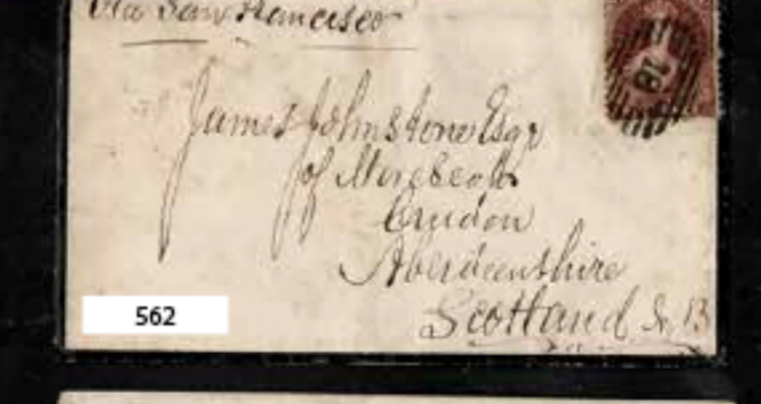 Via San Francisco
18
James Johnstone Esqr
of
Crudon
Aberdeenshire
Scotland N. B
562